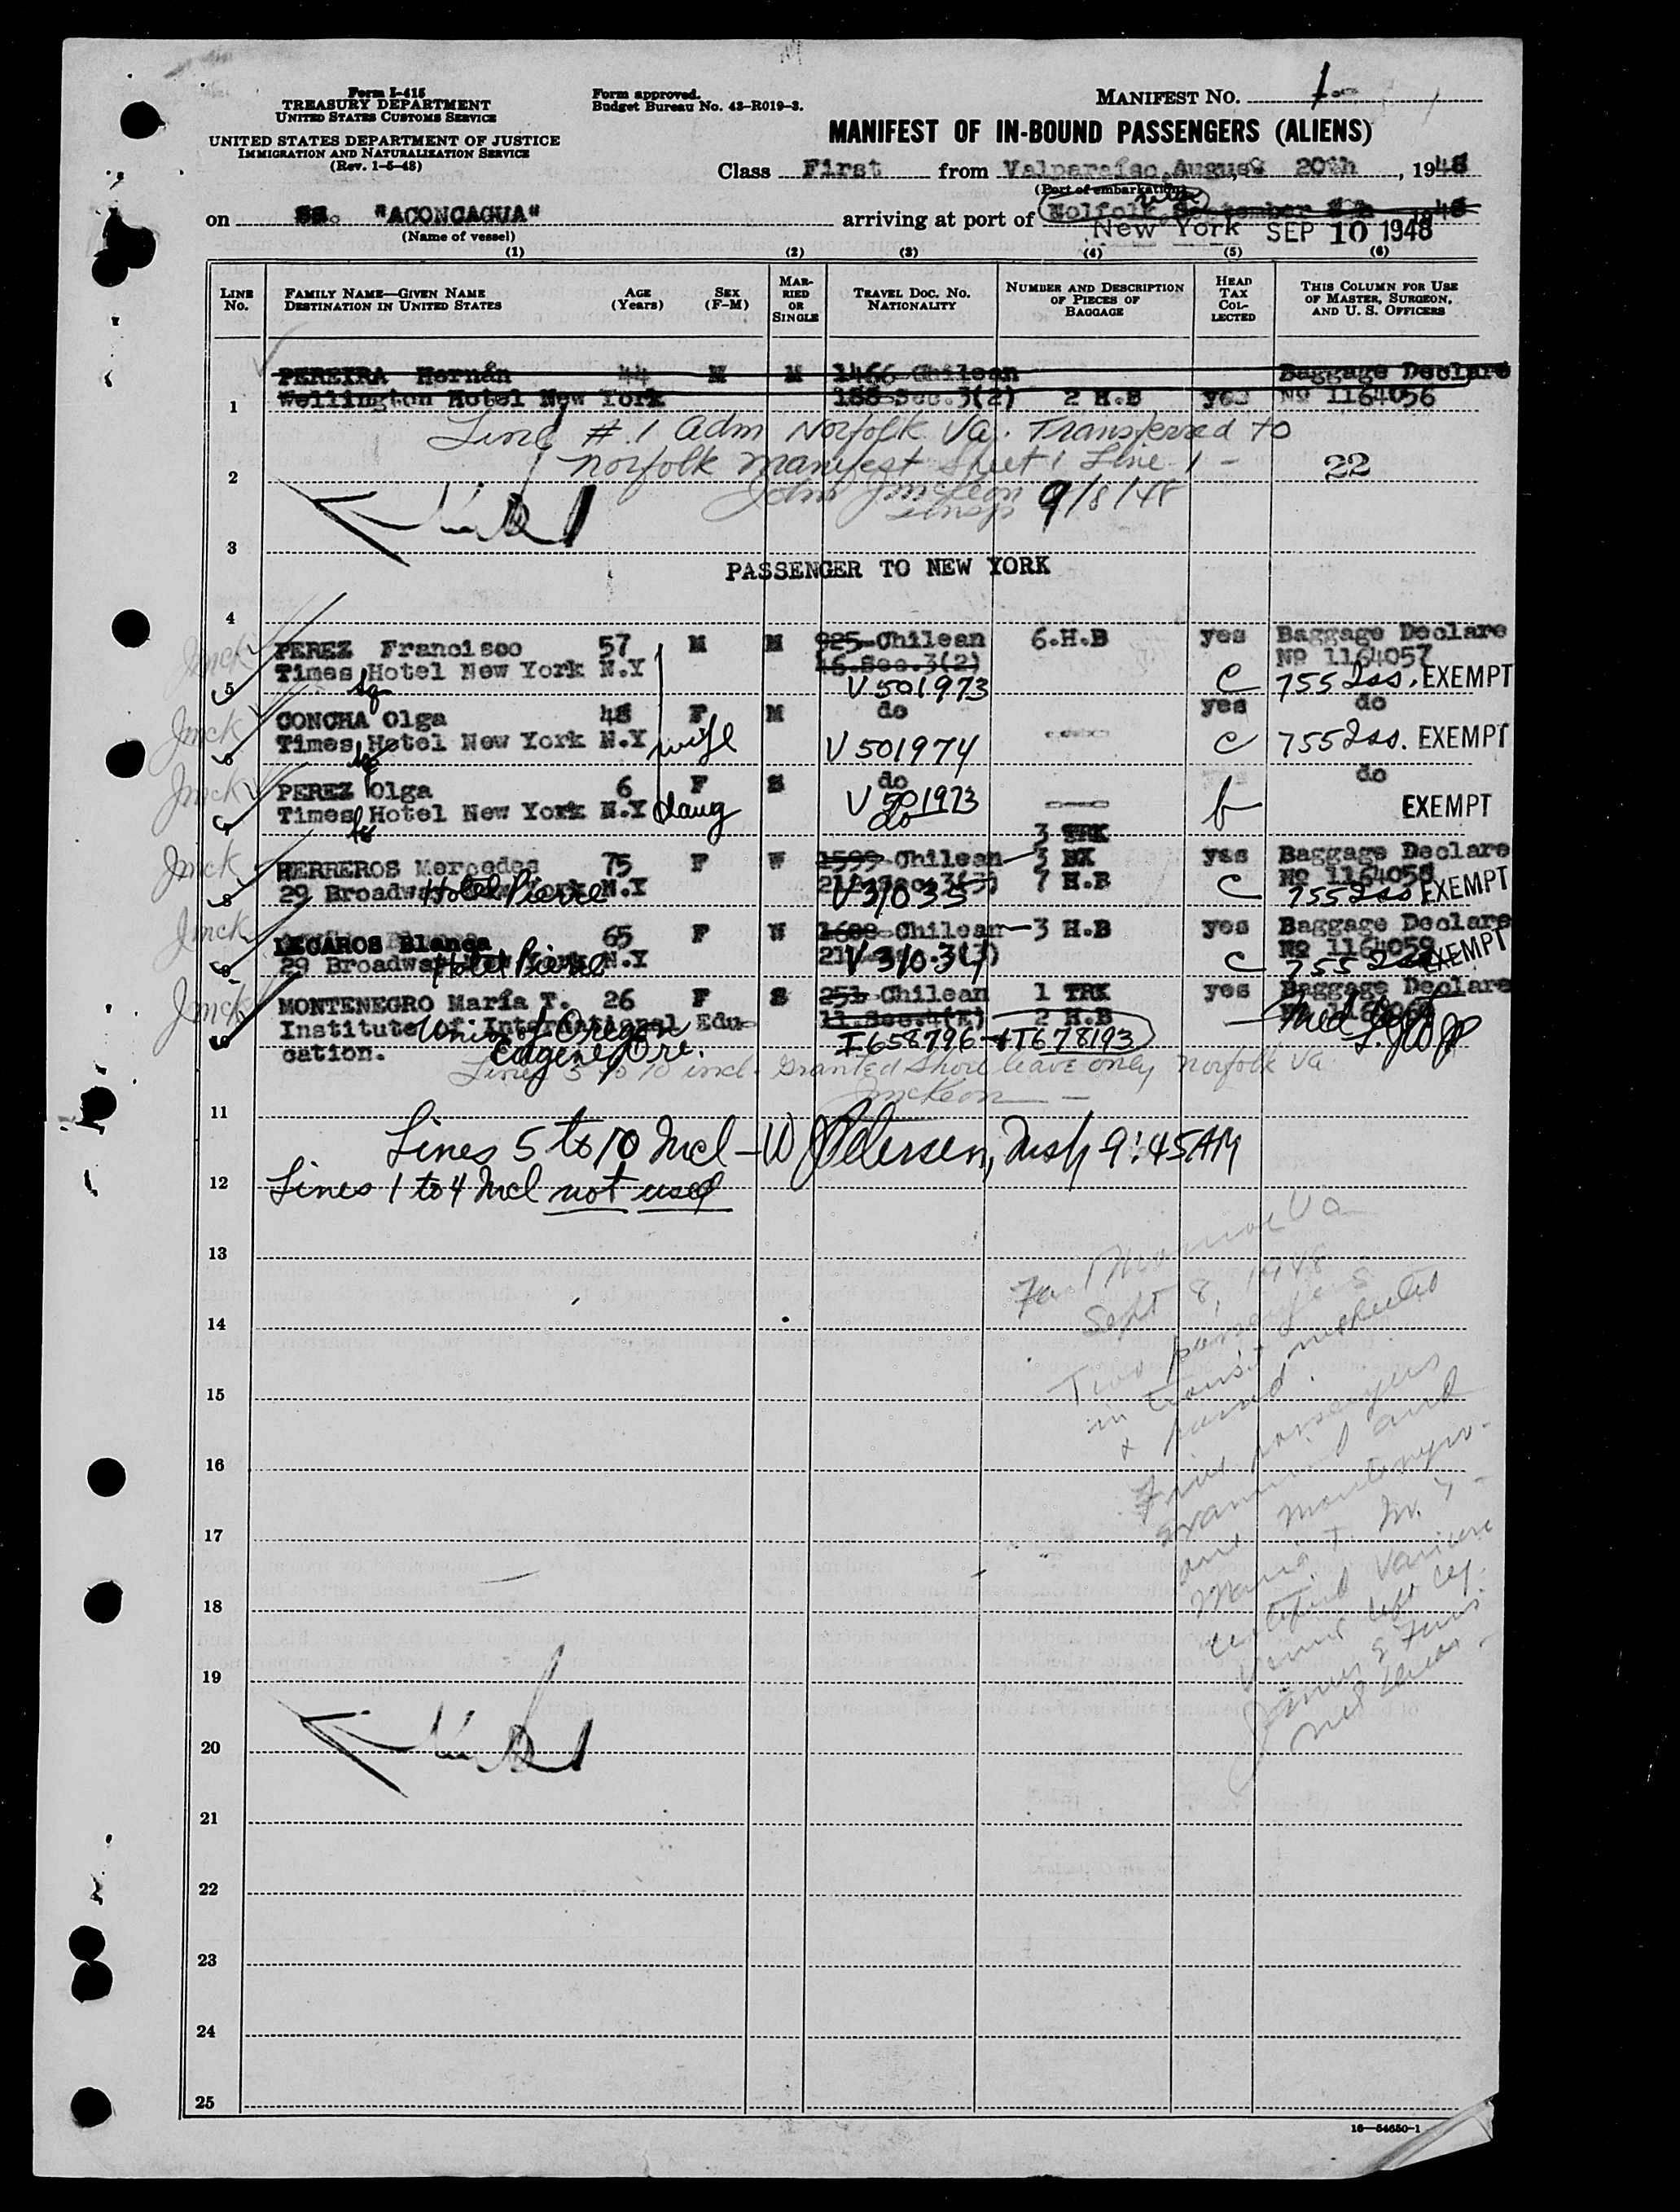 Form I-415
TREASURY DEPARTMENT
UNITED STATES CUSTOMS SERVICE
UNITED STATES DEPARTMENT OF JUSTICE
IMMIGRATION AND NATURALIZATION SERVICE
(Rev. 1-5-48)
Form approved.
Budget Bureau No. 43-R019-3.
MANIFEST NO. 1
MANIFEST OF IN-BOUND PASSENGERS (ALIENS)
Class First from Valparaíso, August 20th, 1948
(Port of embarkation)
on SS. "ACONCAGUA" arriving at port of Nolfolk September 1948
(Name of vessel)
New York SEP 10 1948
(1) (2) (3) (4) (5) (6)
LINE No. FAMILY NAME—GIVEN NAME DESTINATION IN UNITED STATES AGE (Years) SEX (F-M) MARRIED OR SINGLE TRAVEL DOC. NO. NATIONALITY NUMBER AND DESCRIPTION OF PIECES OF BAGGAGE HEAD TAX COLLECTED THIS COLUMN FOR USE OF MASTER, SURGEON, AND U. S. OFFICERS
PEREIRA Hernán 44 M M 1466 Chilean Baggage Declare
1 Wellington Hotel New York 188 Sec.3(2) 2 H.B yes Nº 1164056
Line # 1 adm Norfolk Va. Transferred to
2 Norfolk manifest sheet 1 Line 1 - 22
John J McKeon
Insp 9/8/48
3
PASSENGER TO NEW YORK
4
JMcK PEREZ Francisco 57 M M 925 Chilean 6.H.B yes Baggage Declare
Times Hotel New York N.Y 16.Sec.3(2) Nº 1164057
5 sq V501973 C 755 Iss. EXEMPT
JMcK CONCHA Olga 48 F M do yes do
6 Times Hotel New York N.Y wife V501974 C 755 Iss. EXEMPT
JMcK PEREZ Olga 6 F S do do
7 Times Hotel New York N.Y daug V501973 b EXEMPT
do
3 TRK
JMcK HERREROS Mercedes 75 F W 1599 Chilean 3 BX yes Baggage Declare
8 29 Broadway New York N.Y Hotel Pierre V31035 7 H.B C Nº 1164058 755 Iss EXEMPT
JMcK LEGAROS Blanca 65 F W Chilean 3 H.B yes Baggage Declare
9 29 Broadway New York N.Y Hotel Pierre C Nº 1164059 755 EXEMPT
JMcK MONTENEGRO María T. 26 F S 251 Chilean 1 TRK yes Baggage Declare
10 Institute of International Edu- 11.Sec.4(E) 2 H.B
cation. Univ of Oregon I658796 T678193
Eugene, Ore.
Lines 5 to 10 incl. Granted Shore leave only Norfolk Va
JMcKeon
11
Lines 5 to 10 Incl - W J Pedersen, Insp 9:45AM
12 Lines 1 to 4 Incl not used
13
Ft Monroe Va
Sept 8, 1948
14
Two passengers
in transit inspected
15
& passed.
Five passengers
16
examined and
one Montenegro
17
Maria T.
certified Varicose
18
Veins left leg.
19
20
21
22
23
24
25
16—54650-1